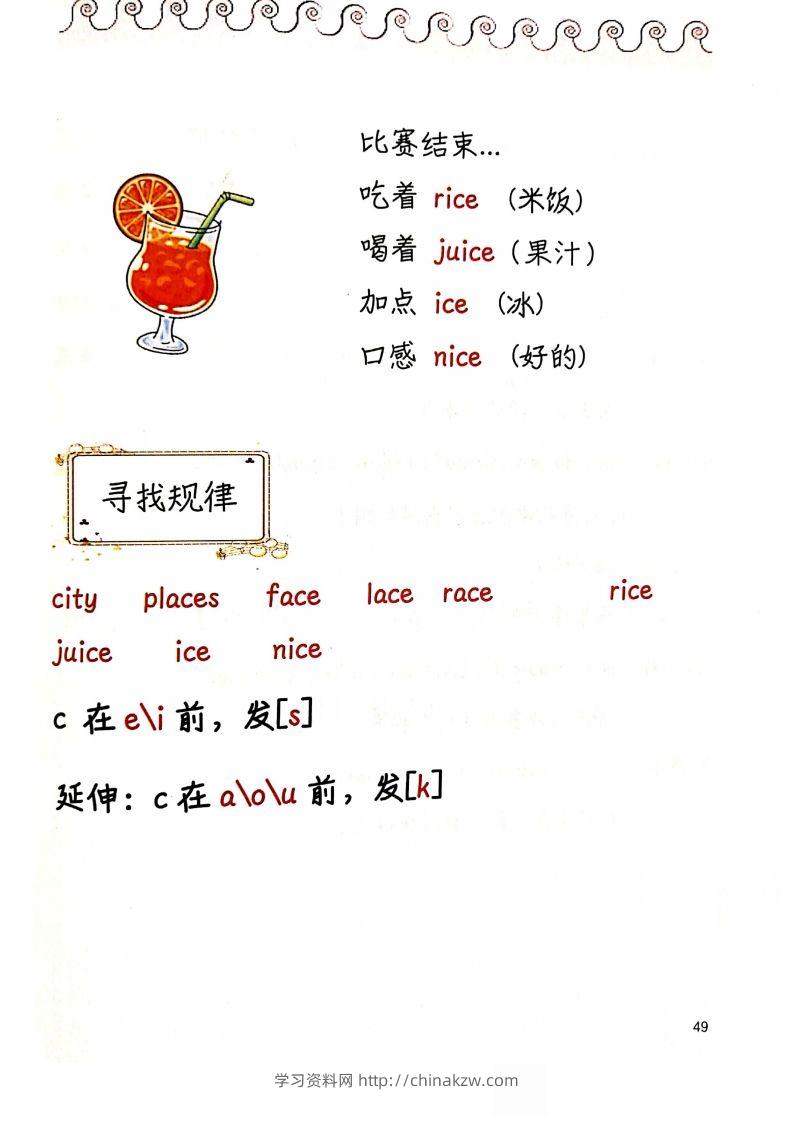 比赛结束...
吃着 rice （米饭）
喝着 juice（果汁）
加点 ice （冰）
口感 nice （好的）
寻找规律
city places face lace race rice
juice ice nice
c 在 e\i 前，发[s]
延伸：c 在 a\o\u 前，发[k]
49
学习资料网 http://chinakzw.com